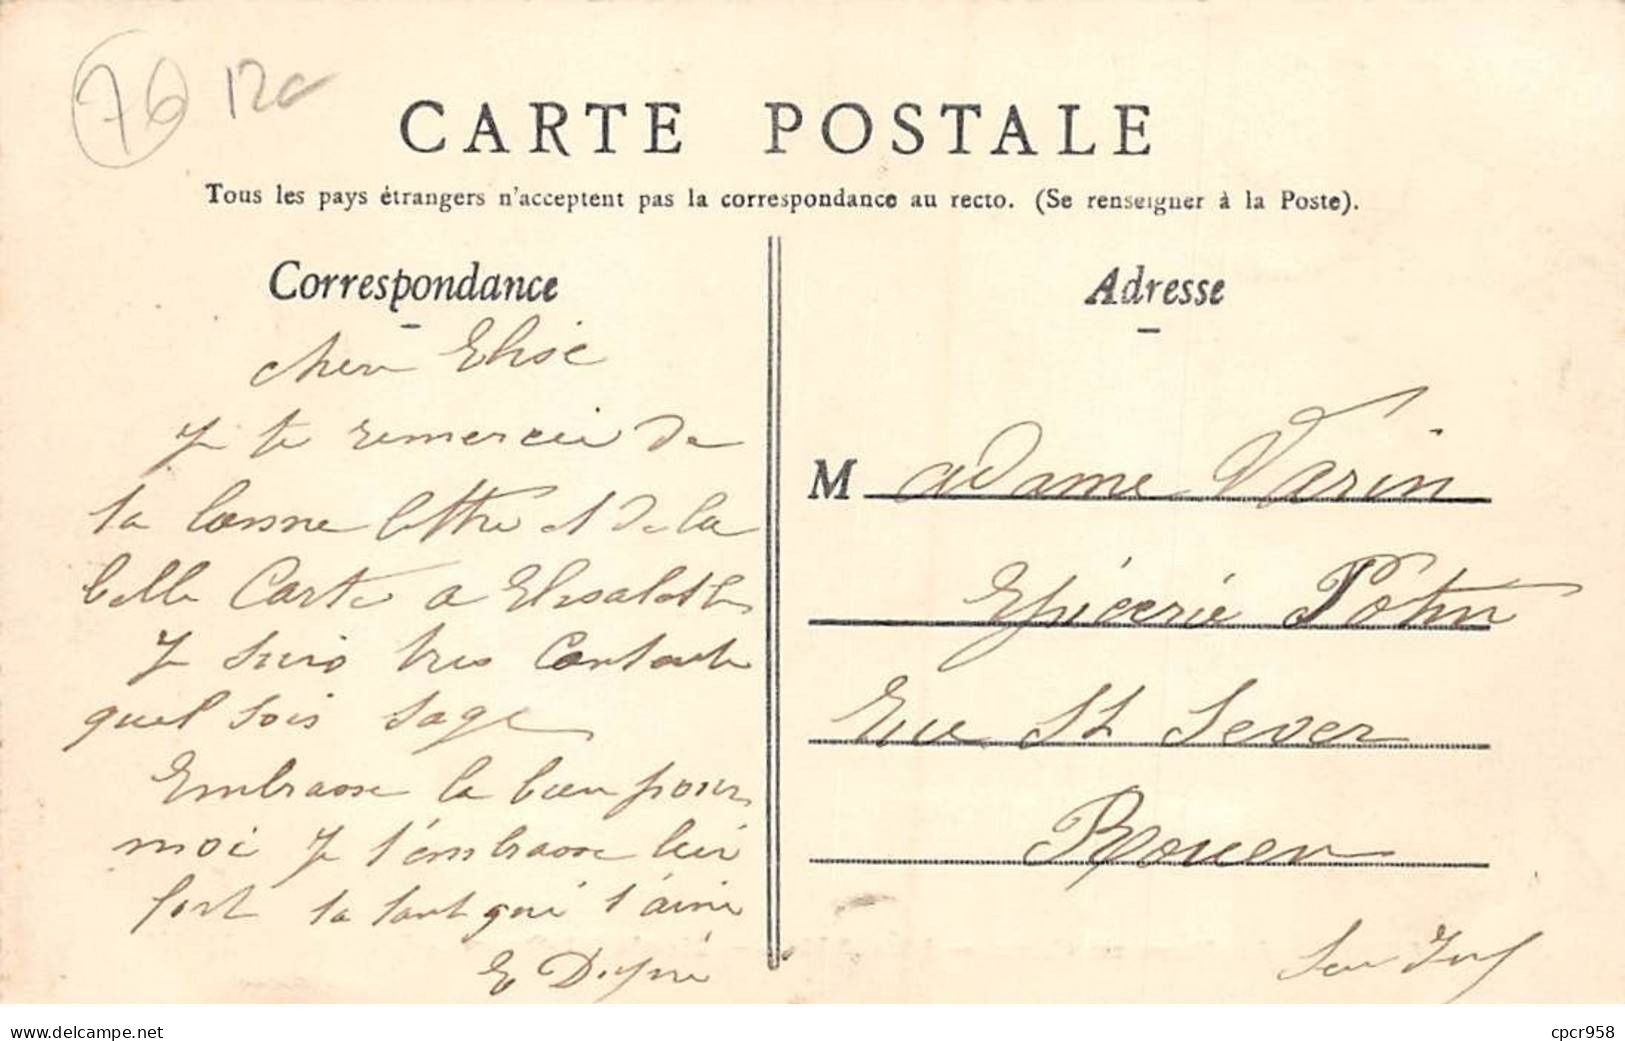 76 12c
CARTE POSTALE
Tous les pays étrangers n'acceptent pas la correspondance au recto. (Se renseigner à la Poste).
Correspondance
cher Elise
Je te remercie de
ta bonne lettre et de la
belle Carte a Elisabeth
Je suis tres Contente
quel sois sage
Embrasse la bien pour
moi Je t'embrasse bien
fort ta tant qui t'aime
E
Adresse
Madame Varin
Epicerie Potin
Rue St Sever
Rouen
Inf
www.delcampe.net
cpcr958